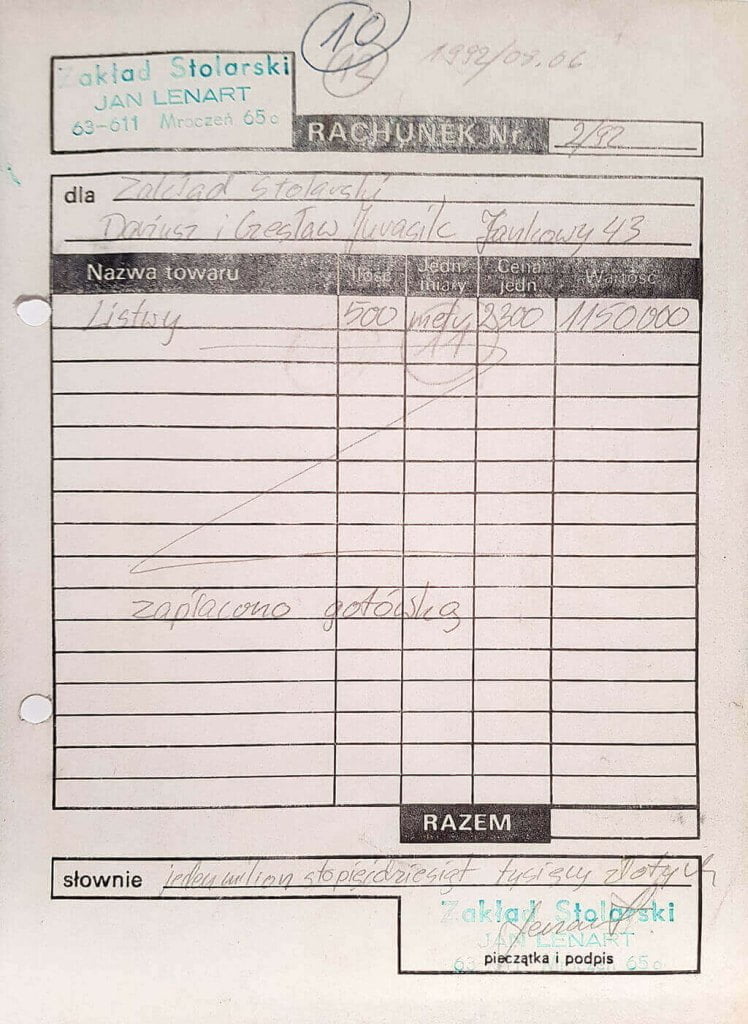 10
12
1992/09.06
Zakład Stolarski
JAN LENART
63-611 Mroczeń 65a
RACHUNEK Nr 2/92
dla Zakład Stolarski
Dariusz i Czesław Jurasik Jankowy 43
Nazwa towaru Ilość Jedn. miary Cena jedn. Wartość
Listwy 500 mety 2300 1150000
11
zapłacono gotówką
RAZEM
słownie jeden milion stopięćdziesiąt tysięcy złotych
Zakład Stolarski
JAN LENART
pieczątka i podpis
63-611 Mroczeń 65a